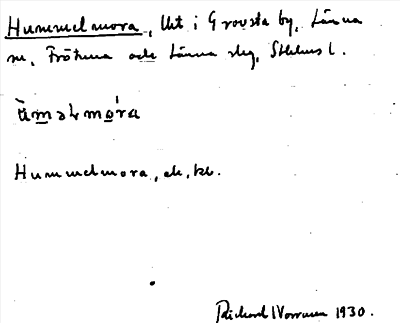 Hummelmora, Uht i Grovsta by, Länna
sn, Frötuna och Länna skg, Sthlms l.
ùməḷmóra
Hummelmora, ek, kb.
Richard 1930.